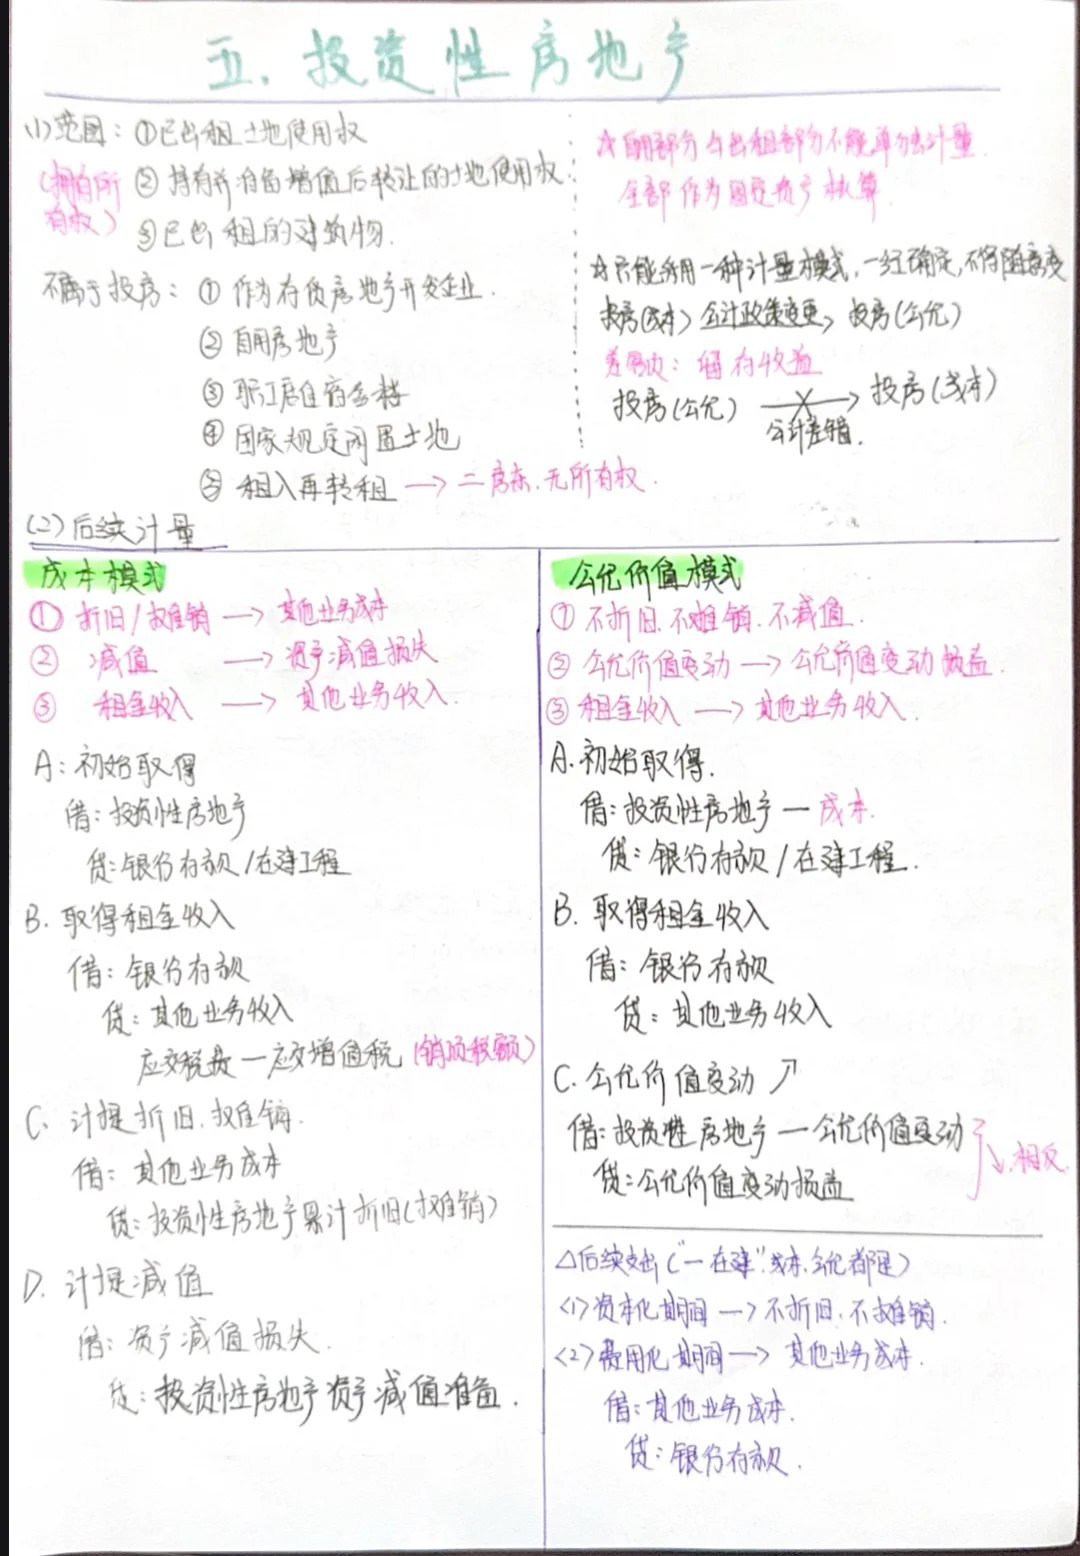 五、投资性房地产
(1)范围：①已出租土地使用权
(拥有所有权)
②持有并准备增值后转让的土地使用权.
③已出租的建筑物.
不属于投房：①作为存货房地产开发企业.
②自用房地产
③职工居住宿舍楼
④国家规定闲置土地
⑤租入再转租 → 二房东.无所有权.
☆自用部分与出租部分不能单独计量.
全部作为固定资产核算.
☆只能采用一种计量模式,一经确定,不得随意变
投房(成本) 会计政策变更→ 投房(公允)
差额：留存收益
投房(公允) ✕→ 投房(成本)
会计差错.
(2)后续计量
成本模式
①折旧/摊销 → 其他业务成本
② 减值 → 资产减值损失
③ 租金收入 → 其他业务收入.
A:初始取得
借:投资性房地产
贷:银行存款/在建工程
B.取得租金收入
借:银行存款
贷:其他业务收入
应交税费—应交增值税(销项税额)
C.计提折旧.摊销.
借:其他业务成本
贷:投资性房地产累计折旧(摊销)
D.计提减值
借:资产减值损失.
贷:投资性房地产资产减值准备.
公允价值模式
①不折旧.不摊销.不减值.
②公允价值变动 → 公允价值变动损益.
③租金收入 → 其他业务收入.
A.初始取得.
借:投资性房地产—成本.
贷:银行存款/在建工程.
B.取得租金收入
借:银行存款
贷:其他业务收入
C.公允价值变动 ↗
借:投资性房地产—公允价值变动
贷:公允价值变动损益
↘.相反
△后续支出("—在建"成本.公允都是)
<1>资本化期间 → 不折旧.不摊销.
<2>费用化期间 → 其他业务成本.
借:其他业务成本.
贷:银行存款.